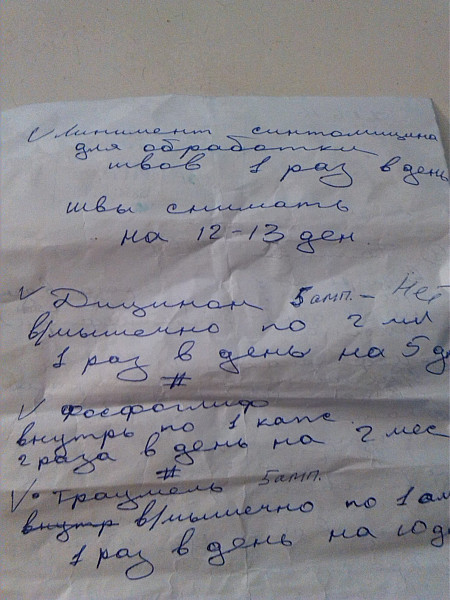 √ Линимент синтомицина
для обработки
швов 1 раз в день
швы снимать
на 12-13 ден
√ Дицинон 5 амп. – Нет
в/мышечно по 2 мл
1 раз в день на 5 д
#
√ Фосфоглиф
внутрь по 1 капс
2 раза в день на 2 мес
#
√ • Траумель 5 амп.
внутр в/мышечно по 1 ам
1 раз в день на 10 д